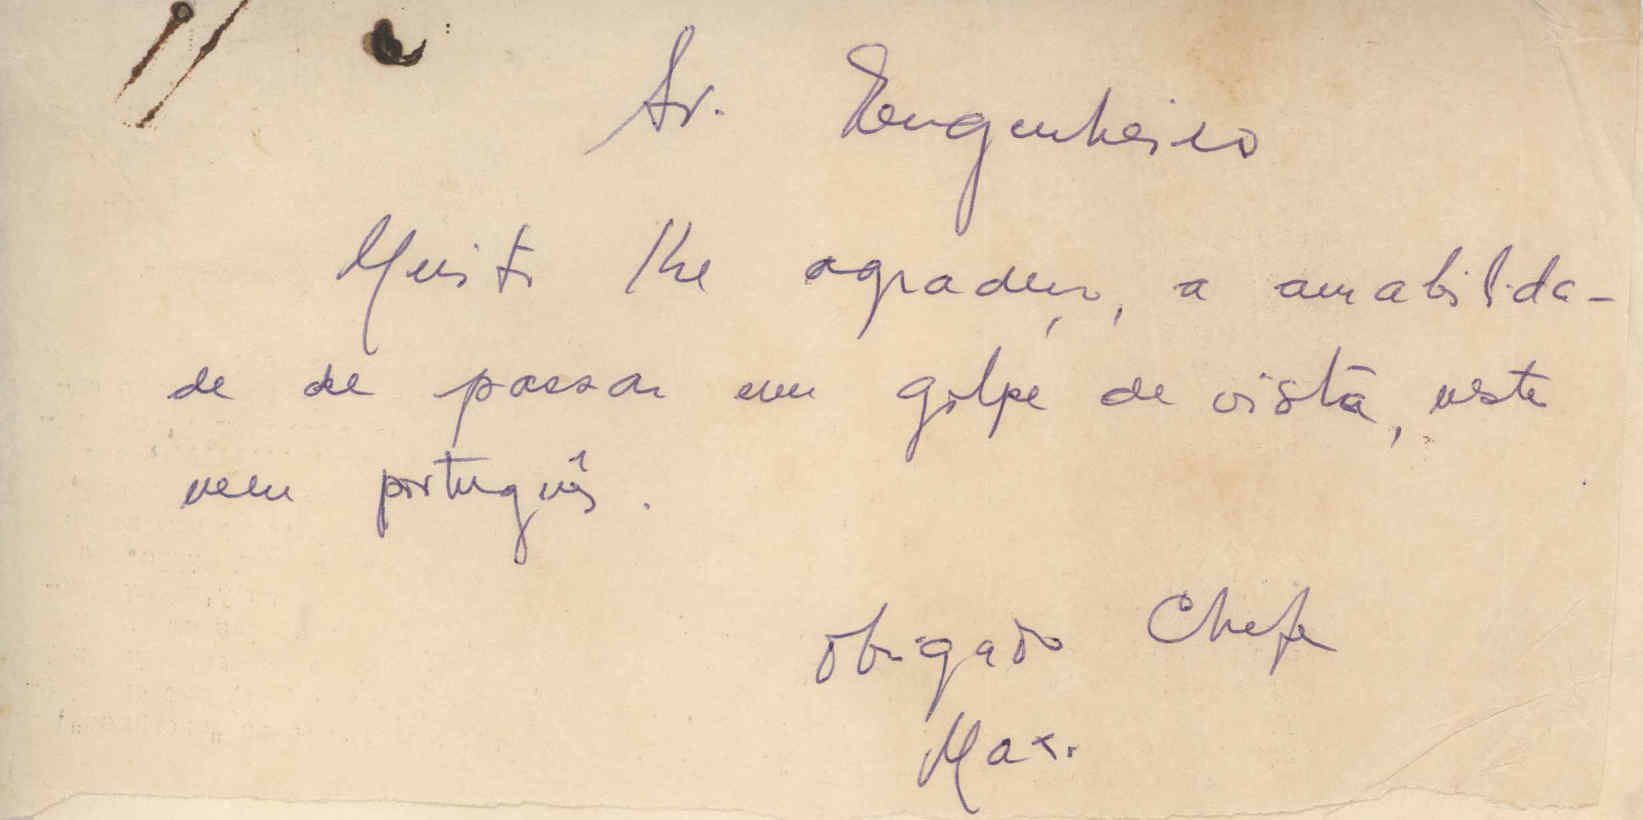 Sr. Engenheiro
Muito lhe agradeço, a amabilida-
de de passar um golpe de vista, neste
meu português.
Obrigado Chefe
Max.